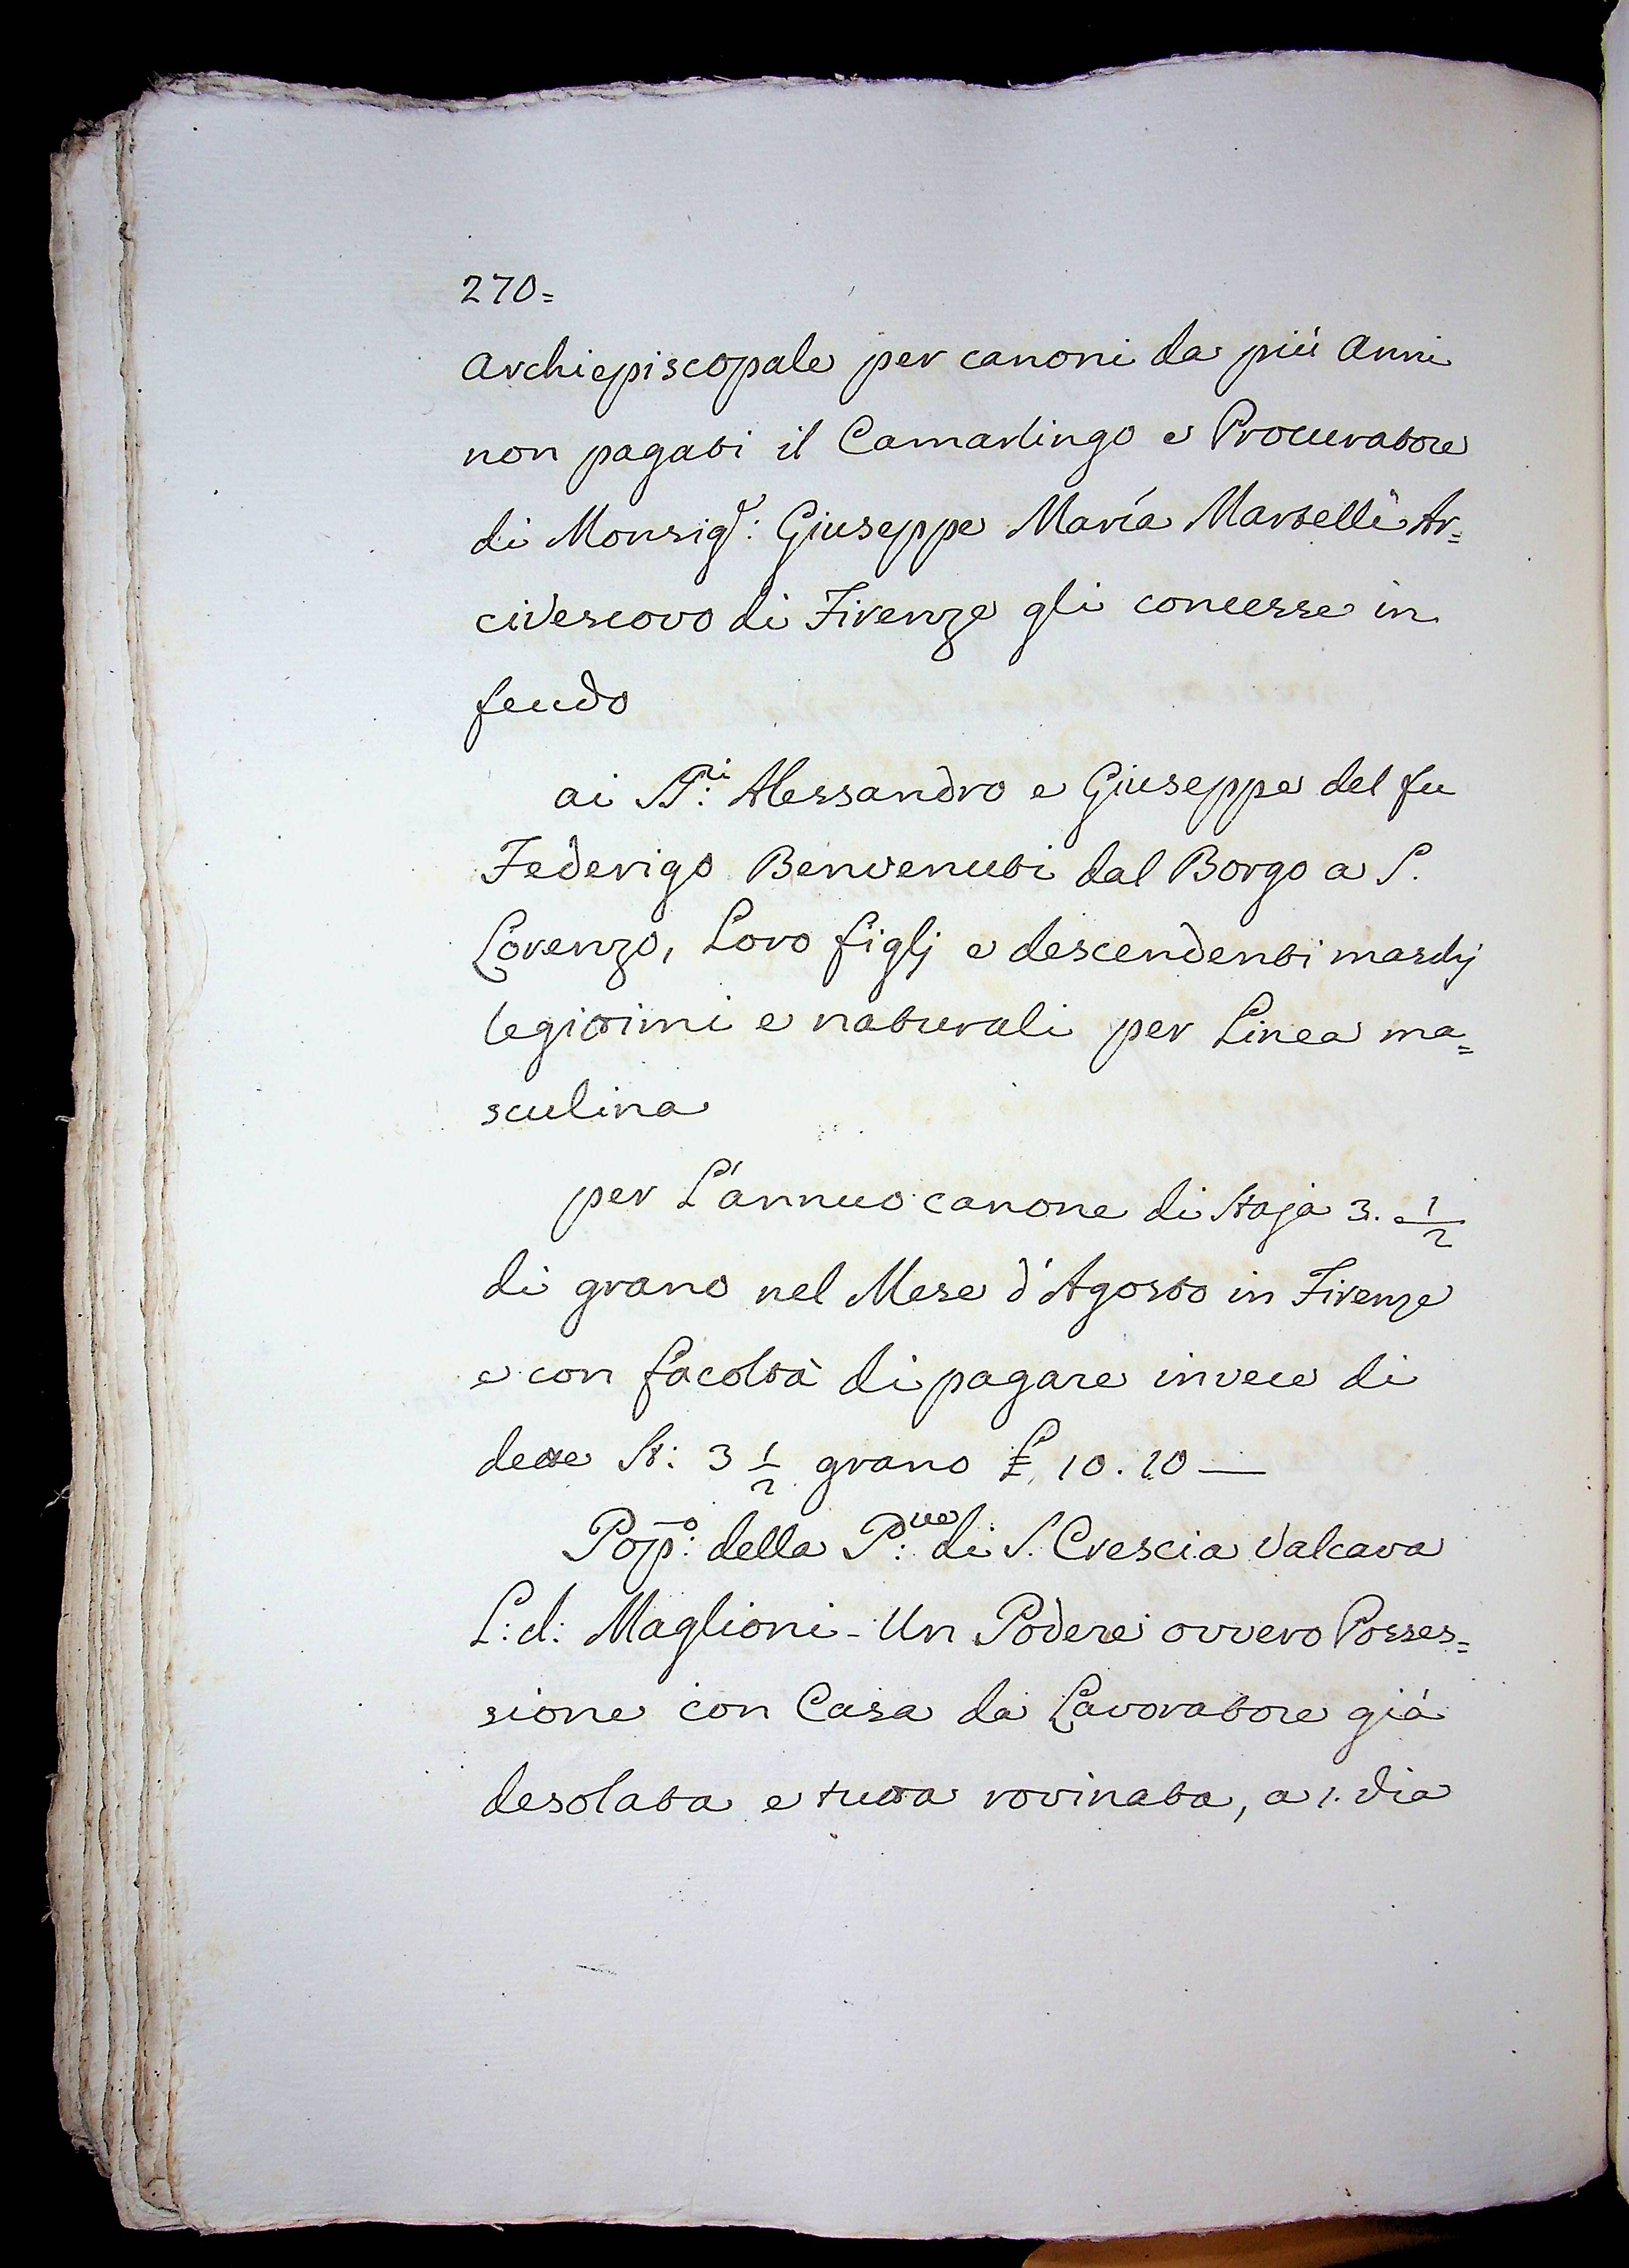 270=
Archiepiscopale per canoni da più Anni
non pagati il Camarlingo e Procuratore
di Monsig.r: Giuseppe Maria Martelli Ar=
civescovo di Firenze gli concesse in
feudo
ai SS.ri: Alessandro e Giuseppe del fu
Federigo Benvenuti dal Borgo a S.
Lorenzo, Loro figlj e descendenti maschj
legittimi e naturali per Linea ma=
sculina
per L'annuo canone di Staja 3. 1/2
di grano nel Mese d'Agosto in Firenze
e con facoltà di pagare invece di
dette St: 3 1/2 grano £ 10. 10 —
Pop.o: della P.ve: di S. Crescia Valcava
L: d: Maglioni - Un Podere ovvero Posses=
sione con Casa da Lavoratore già
desolata e tutta rovinata, a 1. Via